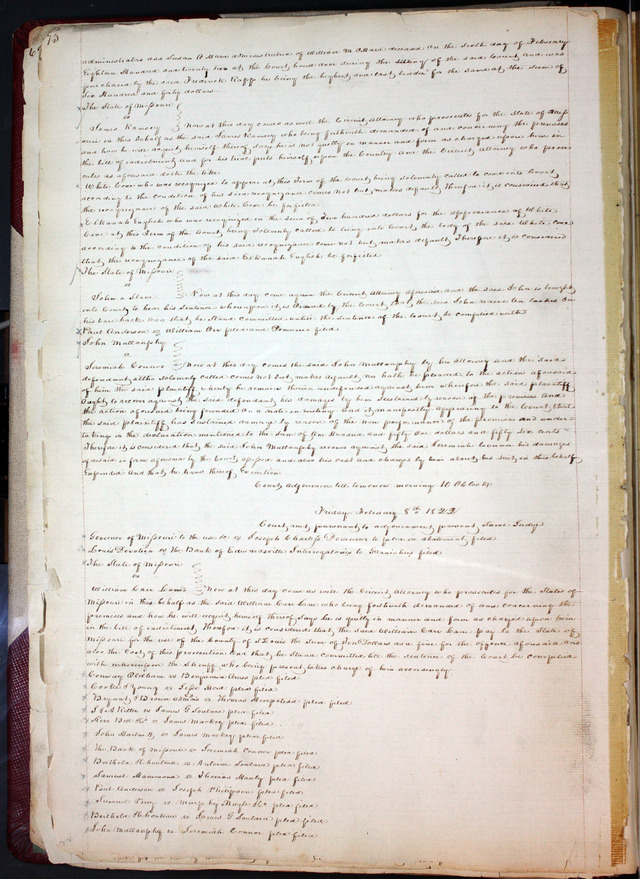 73
administrator and Susan O Mara administratrix of William M. OHara deceased on the Sixth day of February
Eighteen Hundred and twenty two at the Court house door during the sitting of the said Court and was
purchased by the said Frederick he being the highest and last bidder for the Same at the Sum of
Six Hundred and forty dollars
The State of Missouri
vs
James Ramsey Now at this day comes as well the Circuit Attorney who prosecutes for the State of Miss
ouri in this behalf as the said James Ramsey who being forthwith demanded of and concerning the premises
and how he will acquit himself thereof says he is not guilty in manner and form as charged upon him in
the bill of indictment and for his trial puts himself upon the Country and the Circuit Attorney who prose
cutes as aforesaid doth the like
White Cove who was recognized to appear at this Term of the Court being solemnly called to come into Court
according to the condition of his said recognizance comes not but makes default Therefore it is considered that
the recognizance of the said White Cove be forfeited
Elkanah English who was recognized in the sum of Two hundred dollars for the appearance of White
Cove at this Term of the Court being solemnly called to bring into Court the body of the said White Cove
according to the condition of his said recognizance come not but makes default Therefore it is considered
that the recognizance of the said Elkanah English be forfeited
The State of Missouri
vs
John a Slave Now at this day come again the Circuit Attorney aforesaid and the said John is brought
into Court to hear his Sentence whereupon it is ordered by the Court that the said John receive ten lashes on
his bare back and that he stand committed untill the sentence of the Court be complied with
Paul Anderson vs William Orr plea and Demurrer filed
John Mullanphy
vs
Jeremiah Connor Now at this day comes the said John Mullanphy by his attorney and the said
defendant altho solemnly called comes not but makes default nor hath he pleaded to the action aforesaid
of him the said plaintiff whereby he remains therein undefended against him wherefore the said plaintiff
ought to recover against the said defendant his damages by him sustained by reason of the premises And
the action aforesaid being founded on a note in writing and it manifestly appearing to the Court that
the said plaintiff has sustained damage by reason of the non performance of the promises and under
taking in the declaration mentioned to the Sum of Hundred and fifty dollars and fifty six cents
Therefore it is considered that the said John Mullanphy recover against the said Jeremiah Connor his damages
aforesaid in form aforesaid by the Court assessed and also his cost and charges by him about his suit in this behalf
Expended And that he have thereof Execution
Court adjourned till tomorrow morning 10 O'clock
Friday February 8th 1822
Court met pursuant to adjournment present Same Judge
Governor of Missouri to the use &c vs Joseph Charless Demurrer to plea in abatement filed
Louis Devotion vs The Bank of Edwardsville Interrogatories to Garnishees filed
The State of Missouri
vs
William Carr Lane Now at this day come as well the Circuit Attorney who prosecutes for the State of
Missouri in this behalf as the said William Carr Lane who being forthwith demanded of and concerning the
premises and how he will acquit himself thereof says he is guilty in manner and form as charged upon him
in the bill of indictment Therefore it is considered that the said William Carr Lane pay to the State of
Missouri for the use of the County of St Louis the Sum of Dollars as a fine for the offence aforesaid and
also the Cost of this prosecution and that he Stand committed till the sentence of the Court be complied
with whereupon the Sheriff who being present takes charge of him accordingly
Conway Oldham vs Benjamin Ames plea filed
Cooter & Young vs Jesse plea filed
Bryant & Brown vs Thomas Hempstead plea filed
J & A Kitter vs James G Soulard plea filed
Kerr Bro &Co vs James Mackey plea filed
John vs James Mackey plea filed
The Bank of Missouri vs Jeremiah Connor plea filed
Berthold & Chouteau vs Antoine Soulard plea filed
Samuel Hammond vs Thomas Hanly plea filed
Paul Anderson vs Joseph Philipson plea filed
Samuel Perry vs &Co plea filed
Berthold & Chouteau vs James G Soulard plea filed
John Mullanphy vs Jeremiah Connor plea filed